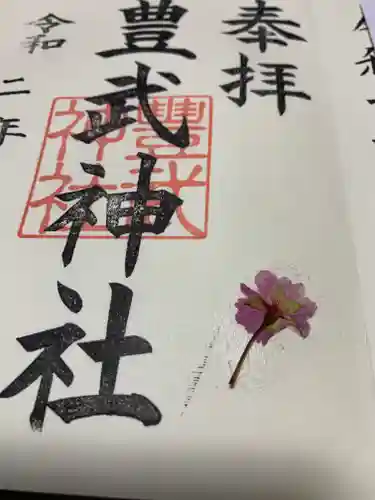 奉拝
豊武神社
豊武
神社
令和二年